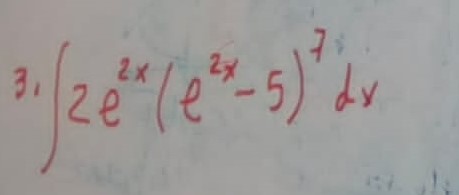 3. ∫ 2e^{2x} (e^{2x} - 5)^7 dx